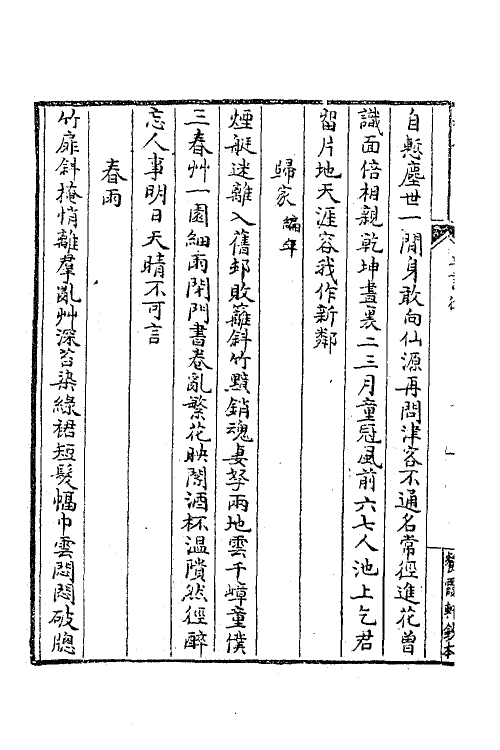 自慙塵世一閒身敢向仙源再問津客不通名常徑進花曾
識面倍相親乾坤畫裏二三月童冠風前六七人池上乞君
留片地天涯容我作新鄰
歸家 編年
煙艇迷離入舊邨敗籬斜竹黯銷魂妻孥兩地雲千嶂童僕
三春艸一園細雨閉門書卷亂繁花映閣酒杯溫隤然徑醉
忘人事明日天晴不可言
春雨
竹扉斜掩悄離羣亂艸深苔染綠裙短髮幅巾雲悶悶破牕
霞軒鈔本